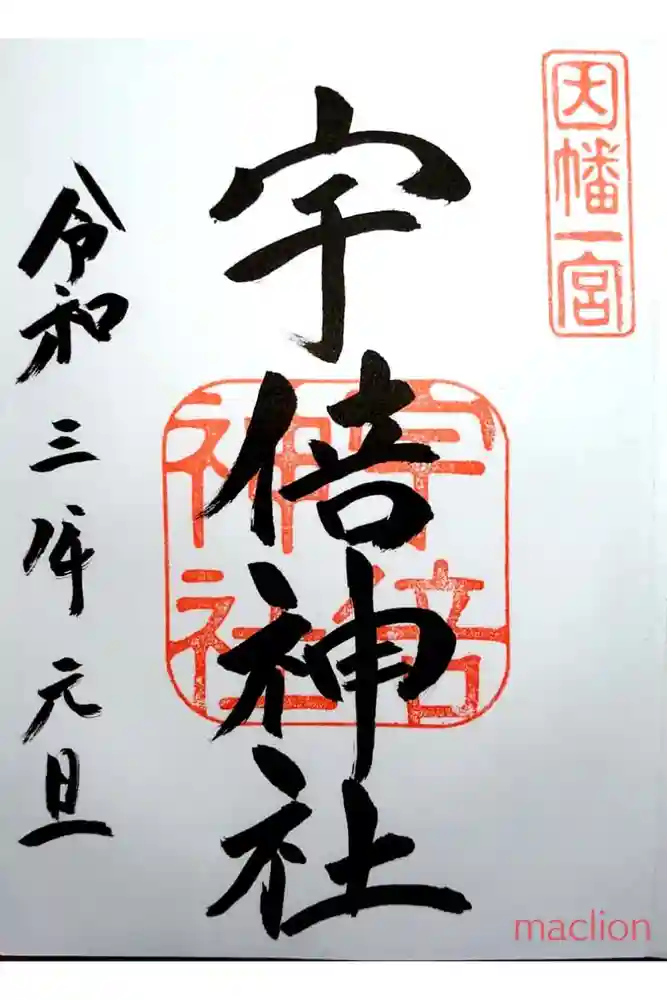 因幡一宮
宇倍神社
宇倍
神社
令和三年元旦
maclion